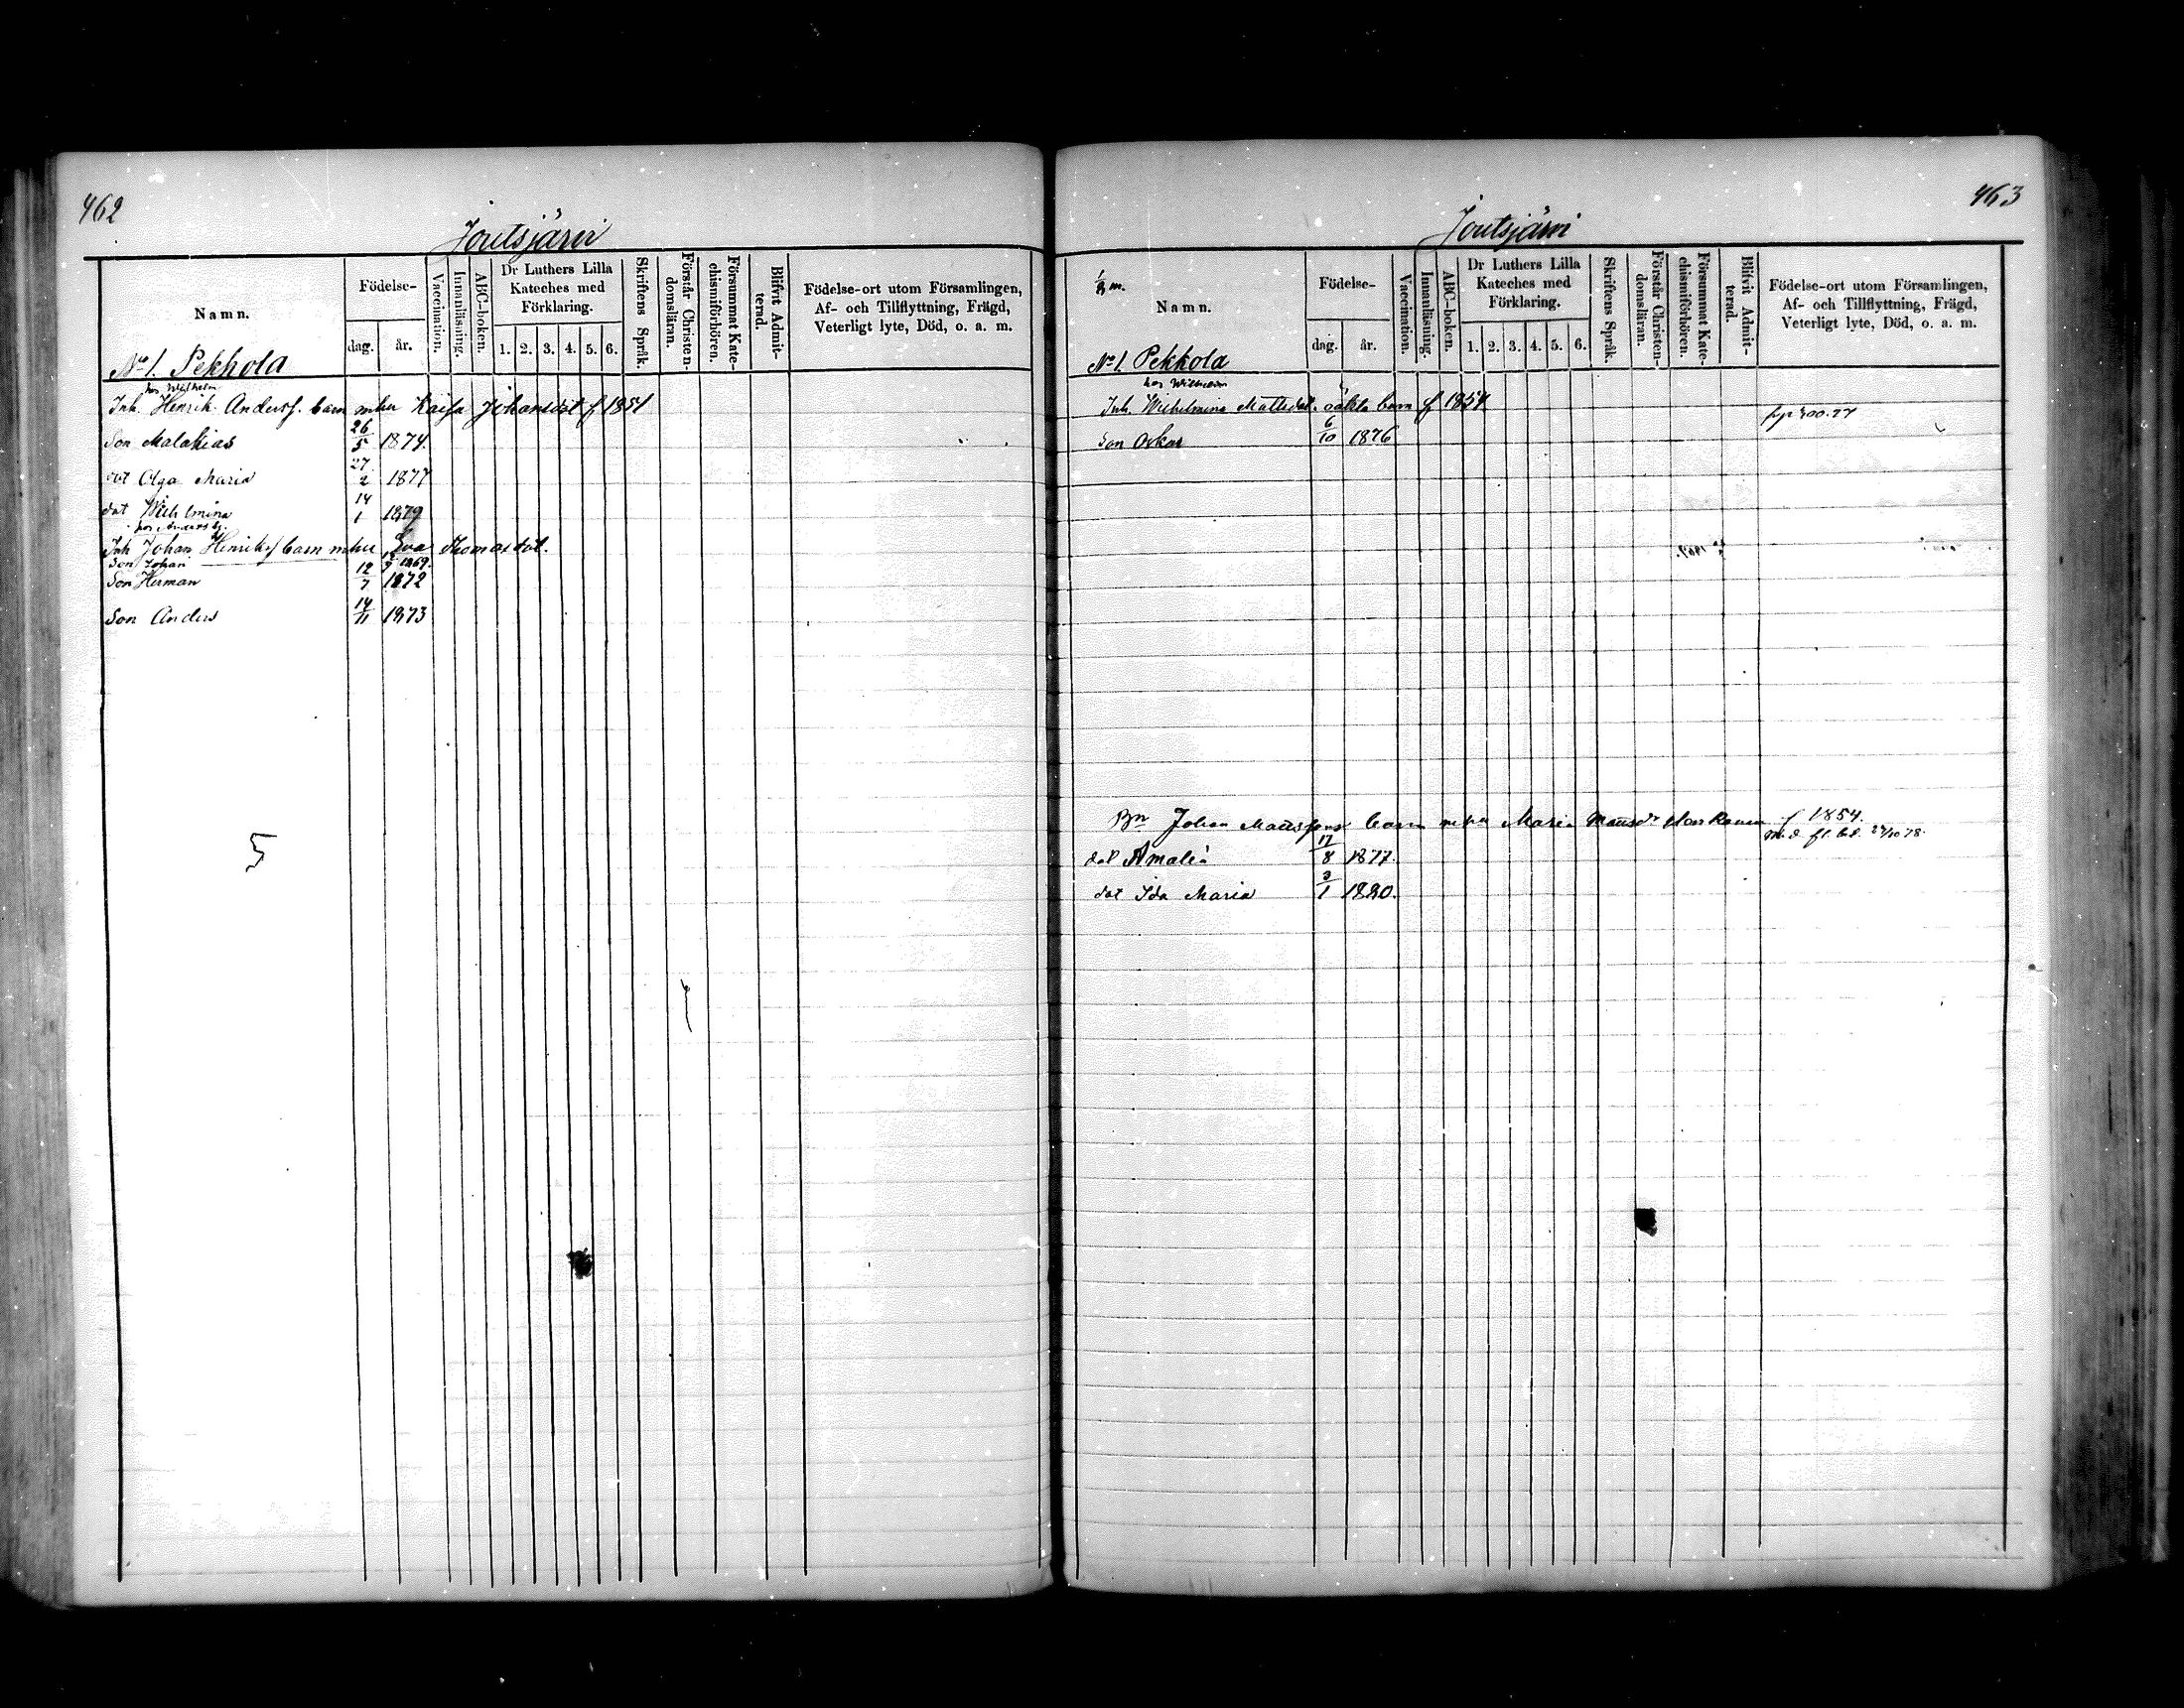 462
Joutsjärvi
Namn.
Födelse-
dag.
år.
Vaccination.
Innanläsning.
ABC-boken.
Dr Luthers Lilla
Kateches med
Förklaring.
1. 2. 3. 4. 5. 6.
Skriftens Språk.
Förstår Christen-
domsläran.
Försummat Kate-
chismiförhören.
Blifvit Admit-
terad.
Födelse-ort utom Församlingen,
Af- och Tillflyttning, Frägd,
Veterligt lyte, Död, o. a. m.
No 1. Pekkola
hos Wilhelm
Inh. Henrik Anderss. barn mhu Kaisa Johansdot f 1851
Son Malakias 26/5 1874.
dot Olga Maria 27/2 1877
dot Wilhelmina 14/1 1879
hos Anders
Inh Johan Henrikss barn mhu Eva Thomasdot.
Son Johan 1869.
Son Herman 12/7 1872
Son Anders 14/11 1873
5
463
Joutsjärvi
Namn.
Födelse-
dag.
år.
Vaccination.
Innanläsning.
ABC-boken.
Dr Luthers Lilla
Kateches med
Förklaring.
1. 2. 3. 4. 5. 6.
Skriftens Språk.
Förstår Christen-
domsläran.
Försummat Kate-
chismiförhören.
Blifvit Admit-
terad.
Födelse-ort utom Församlingen,
Af- och Tillflyttning, Frägd,
Veterligt lyte, Död, o. a. m.
No 1. Pekkola
hos Wilhelm
Inh. Wilhelmina Mattsdot. oäkta barn f 1854
Son Oskar 6/10 1876
Bn Johan Mattssons barn mhu Maria f 1854.
dot Amalia 17/8 1877.
dot Ida Maria 3/1 1880.